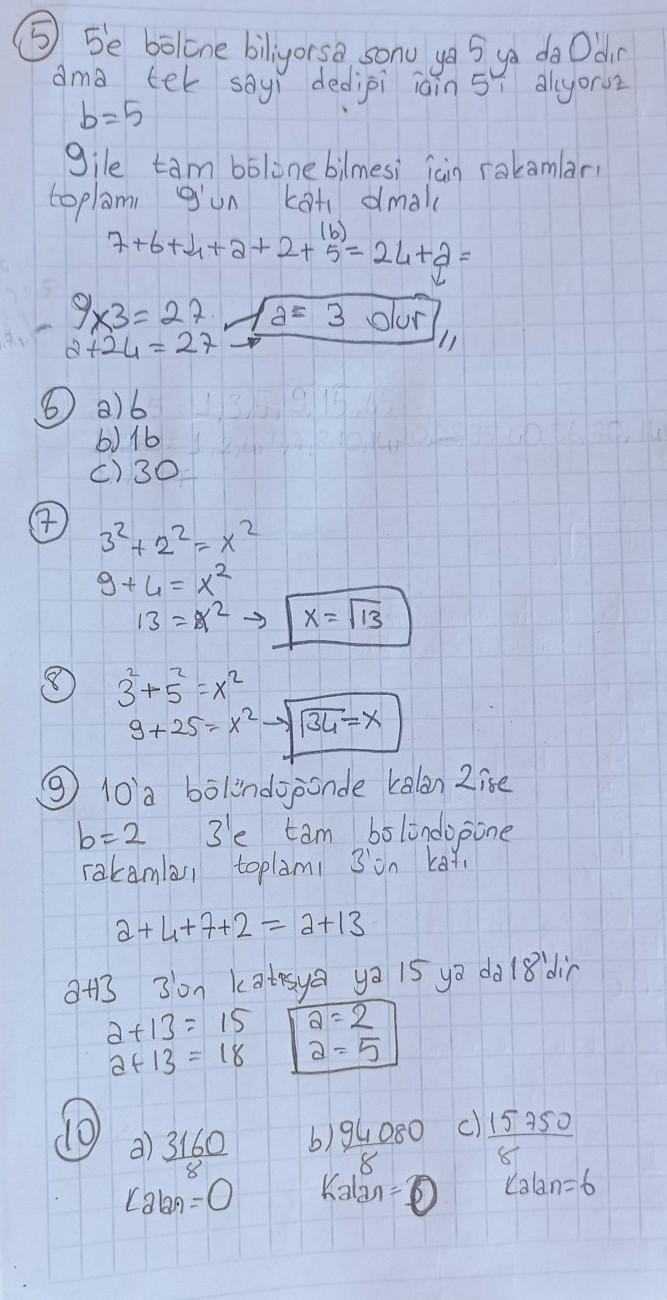 5 5'e bölüne biliyorsa sonu ya 5 ya da 0'dır
ama tek sayı dediği için 5'i alıyoruz
b=5
9 ile tam bölünebilmesi için rakamları
toplamı 9'un katı olmalı
(b)
7+6+4+a+2+5=24+a=
9x3=27 a= 3 olur
a+24=27 →
6 a) 6
b) 16
c) 30
7
3²+2²=x²
9+4=x²
13=x² → x=√13
8 3²+5²=x²
9+25=x² → √34=x
9 10'a bölündüğünde kalan 2 ise
b=2 3'e tam bölündüğüne
rakamları toplamı 3'ün katı
a+4+7+2= a+13
a+13 3'ün katıysa ya 15 ya da 18'dir
a+13= 15 a=2
a+13= 18 a=5
10 a) 3160/8 b) 94080/8 c) 15750/8
Kalan=0 Kalan=0 Kalan=6